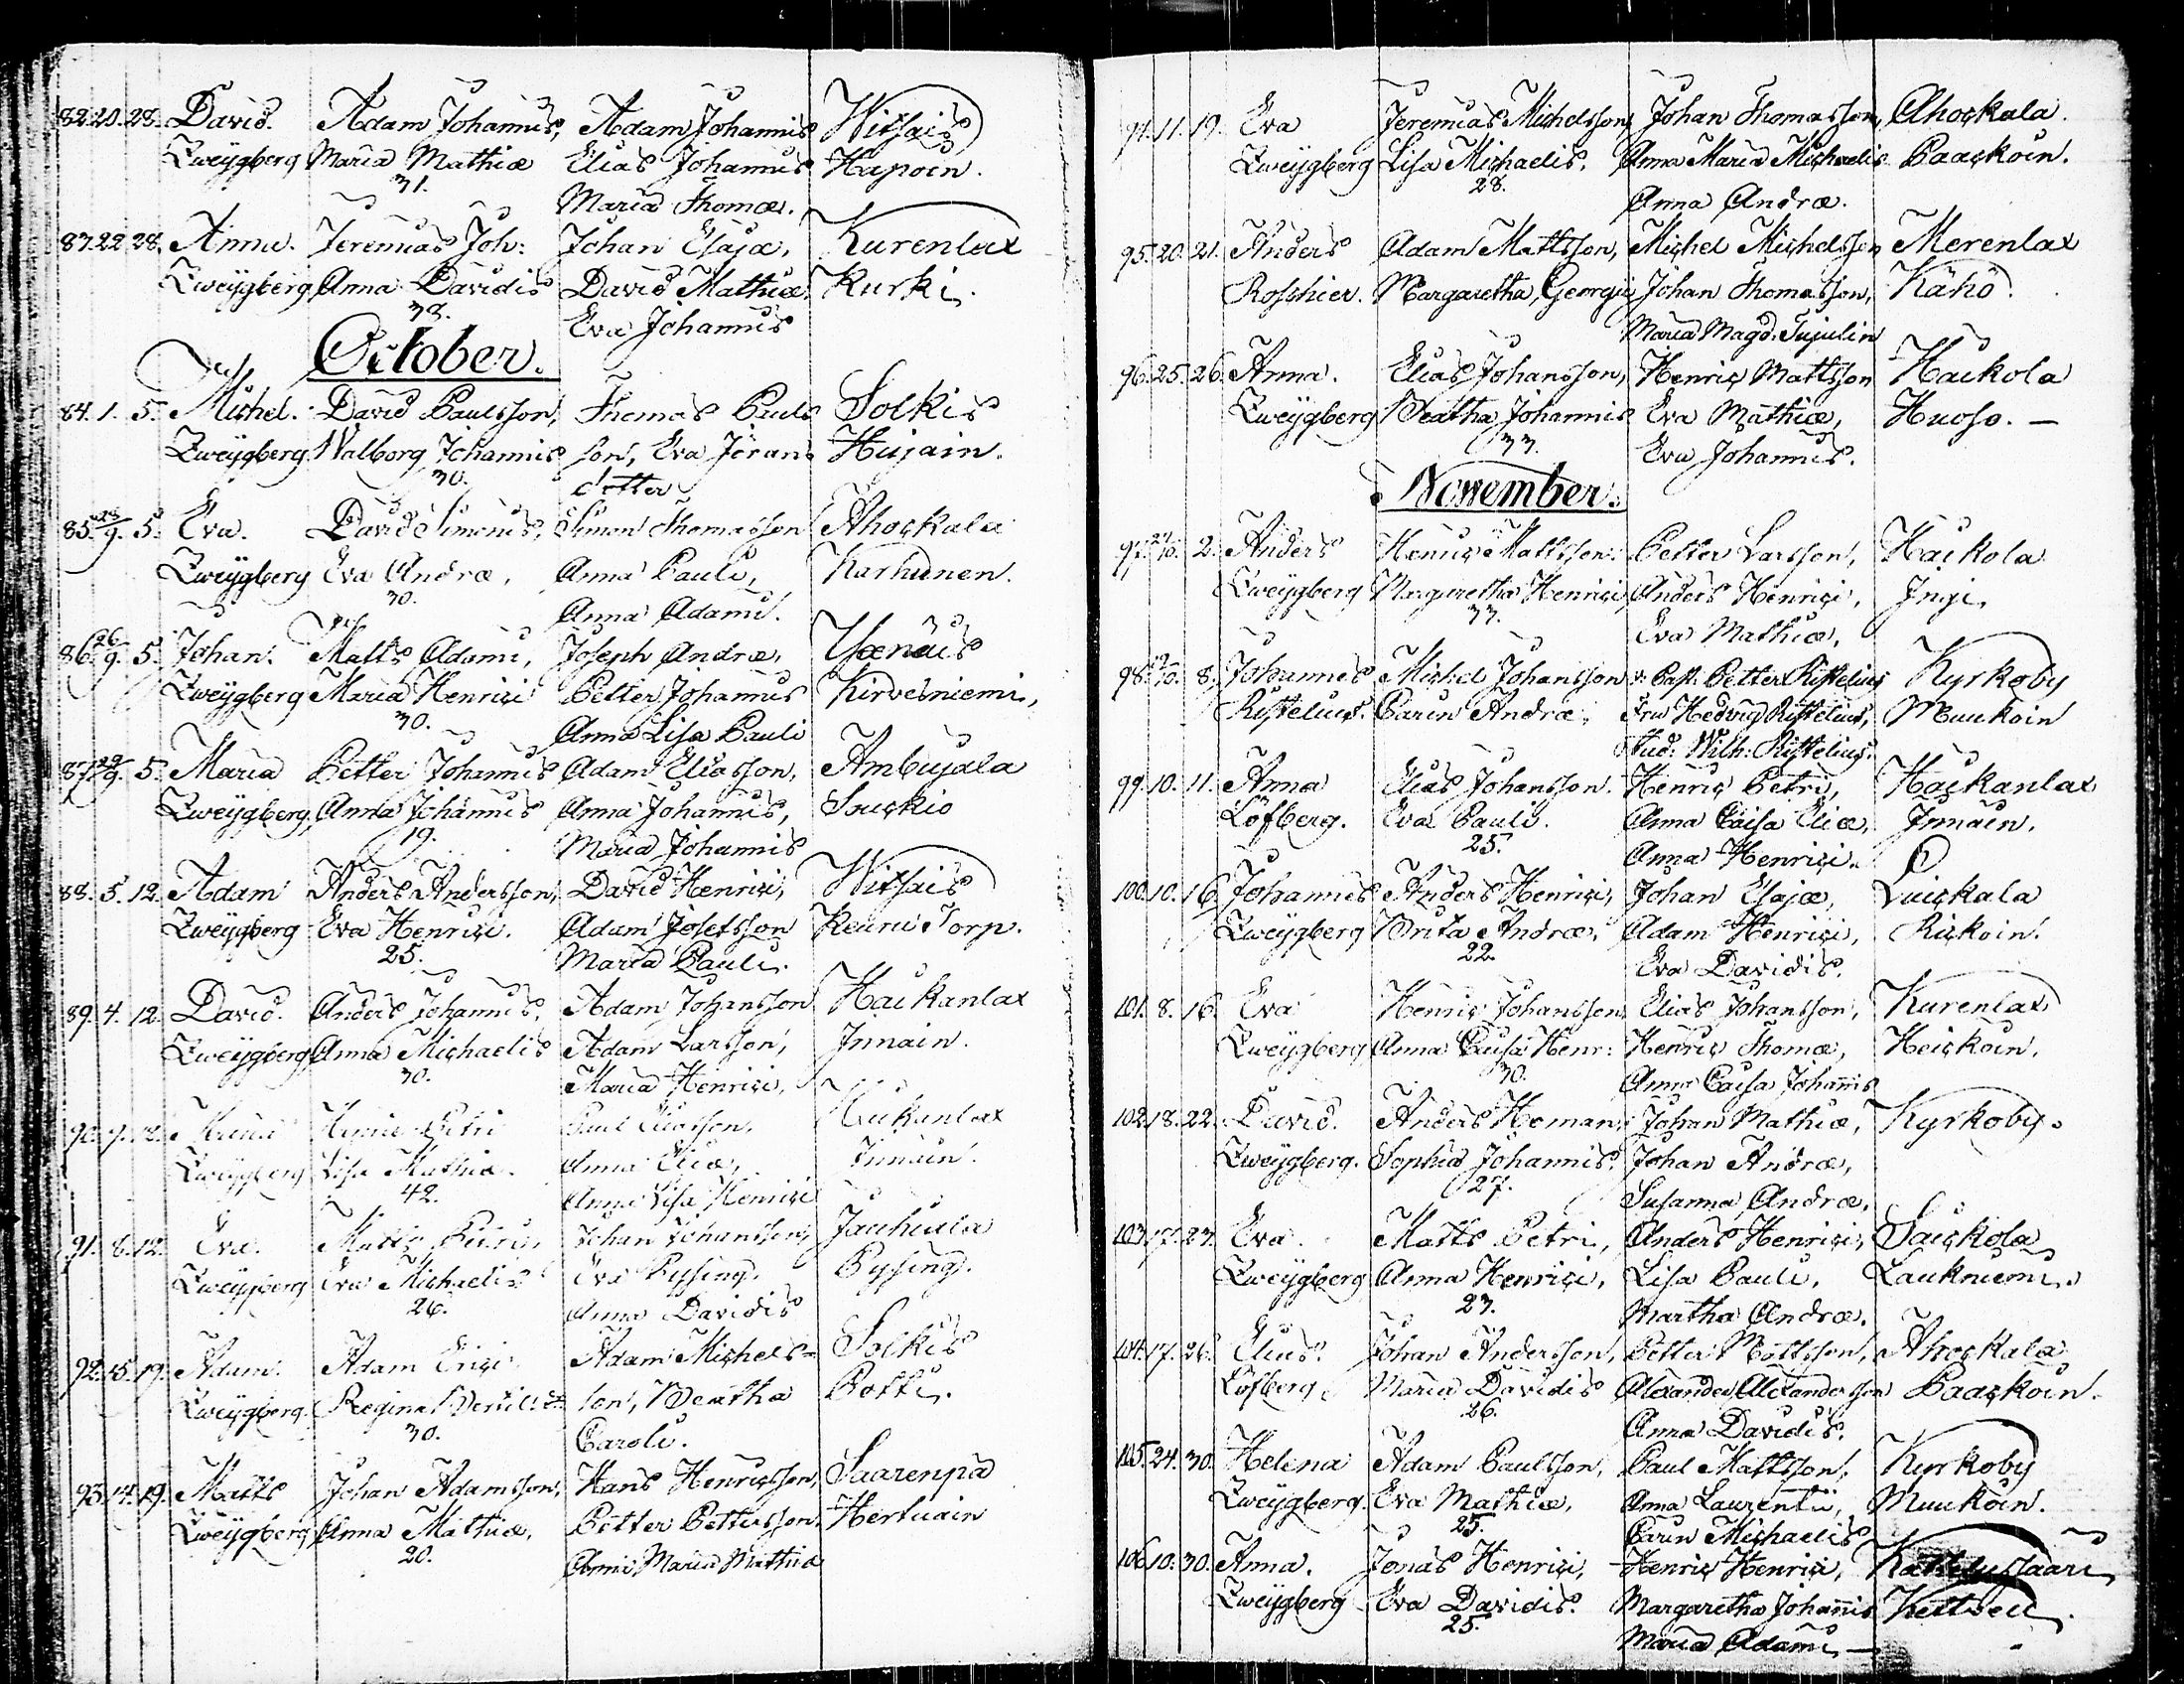 82. 20. 28. David. Adam Johannis, Adam Johannis Witsais
Zweygberg Maria Mathiæ Elias Johannis Hapoin.
31. Maria Thomæ.
83. 22. 28. Anna. Jeremias Joh: Johan Esajæ, Kurenlax
Zweygberg Anna Davidis David Mathiæ, Kurki.
38. Eva Johannis
October.
84. 1. 5. Michel. David Paulsson, Thomas Pauls Solkis
Zweygberg. Walborg Johannis son, Eva Jörans Hujain.
30. dotter
85. 28/9. 5. Eva. David Simonis, Simon Thomasson Ahockala
Zweygberg Eva Andræ, Anna Pauli, Karhunen.
30. Anna Adami.
86. 26/9. 5. Johan. Matts Adami, Joseph Andræ,
Zweygberg Maria Henrici Petter Johannis Kirvesniemi,
30. Anna Lisa Pauli
87. 29/9. 5. Maria Petter Johannis Adam Eliasson, Ambujala
Zweygberg, Anna Johannis Anna Johannis, Suckio
19. Maria Johannis
88. 5. 12. Adam Anders Andersson, David Henrici, Witsais
Zweygberg Eva Henrici. Adam Josefsson Keuru Torp.
25. Maria Pauli.
89. 4. 12. David. Anders Johannis, Adam Johansson Hackanlax
Zweygberg Anna Michaelis Adam Larsson, Innain.
30. Maria Henrici,
90. 9. 12. Henric Petri Paul Eliasson,
Zweygberg Lisa Mathiæ. Anna Eliæ, Innain.
42. Anna Lisa Henrici
91. 8. 12. Eva. Matts Petri, Johan Johansson, Jauhiala
Zweygberg Eva Michaelis Eva Pysing. Pysing.
26. Anna Davidis
92. 15. 19. Adam. Adam Erici Adam Michels= Solkis
Zweygberg. Regina son, Beatha Potti.
30. Caroli.
93. 14. 19. Matts Johan Adamsson, Hans Henricsson, Saarenpä
Zweygberg Anna Mathiæ, Petter Pettersson. Hertuain
20. Anna Maria Mathiæ
94. 11. 19. Eva Jeremias Michelsson, Johan Thomasson, Ahockala.
Zweygberg Lisa Michaelis. Anna Maria Michaelis Paackoin.
28. Anna Andræ.
95. 20. 21. Anders Adam Mattsson, Michel Michelsson Merenlax
Roschier. Margaretha Georgii Johan Thomasson, Kähö.
Maria Magd:
96. 25. 26. Anna. Elias Johansson, Henric Mattsson Hackola
Zweygberg Beatha Johannis Eva Mathiæ, Huoso. –
33. Eva Johannis.
November.
97. 27/10. 2. Anders Henric Mattsson. Petter Larsson, Hackola
Zweygberg Margaretha Henrici, Anders Henrici, Ingi.
33. Eva Mathiæ,
98. 8. Johannes Michel Johansson v. Past. Petter Ristelius Kyrkoby
Ristelius. Carin Andræ. Fru Hedvig Ristelius, Muukoin
Stud: Wilh: Ristelius.
99. 10. 11. Anna Elias Johansson. Henric Petri, Hackanlax
Löfberg. Eva Pauli. Anna Caisa Eliæ, Innain.
25. Anna Henrici.
100. 10. 16. Johannes Anders Henrici, Johan Esajæ, Luickala
Zweygberg Brita Andræ. Adam Henrici, Rickoin.
22. Eva Davidis.
101. 8. 16. Eva Henric Johansson Elias Johansson, Kurenlax
Zweygberg Anna Caisa Henr: Henric Thomæ, Heickoin.
30. Anna Caisa Johannis
102. 18. 22. David. Anders Homan. Johan Mathiæ, Kyrkoby.
Zweygberg. Sophia Johannis. Johan Andræ,
27. Susanna Andræ.
103. 17. 23. Eva. Matts Petri, Anders Henrici, Saickola
Zweygberg Anna Henrici, Lisa Pauli, Laukniemi.
23. Martha Andræ.
104. 17. 26. Elias. Johan Andersson, Petter Mattsson, Ahockala
Löfberg. Maria Davidis Alexander Alexandersson Paackoin.
26. Anna Davidis.
105. 24. 30. Helena Adam Paulsson, Paul Mattsson, Kyrkoby
Zweygberg. Eva Mathiæ, Anna Laurentii, Muukoin.
25. Carin Michaelis
106. 10. 30. Anna. Jonas Henrici, Henric Henrici,
Zweygberg Eva Davidis. Margaretha Johannis
25. Maria Adami –